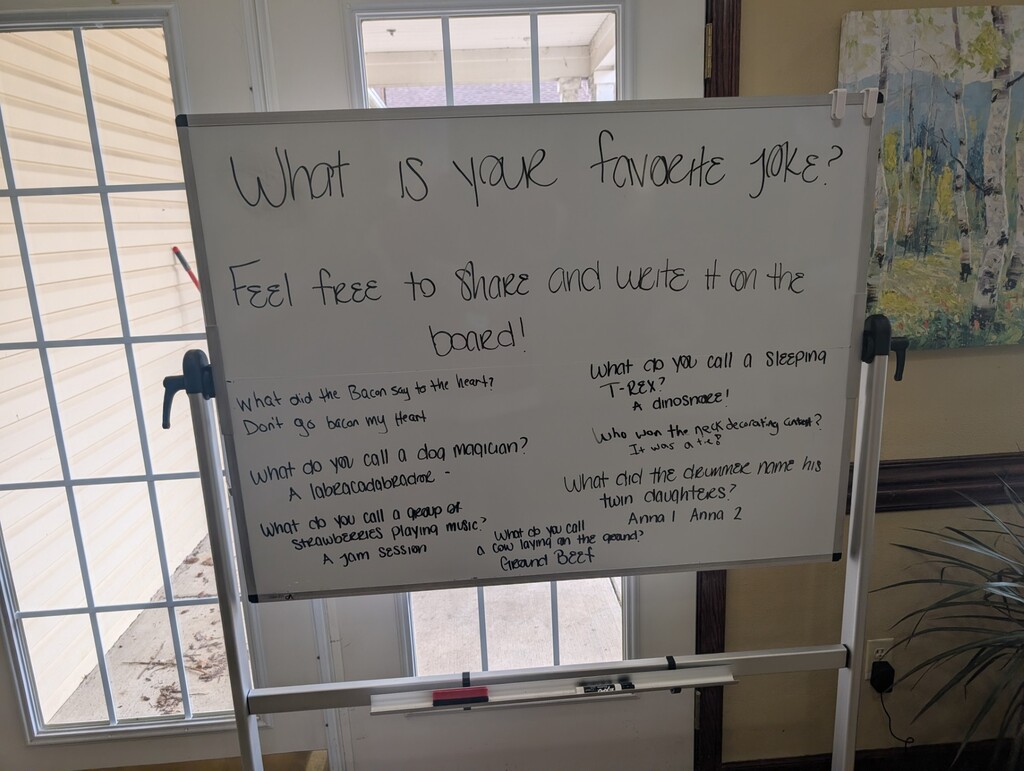 What is your favorite joke?
Feel free to share and write it on the
board!
What did the Bacon say to the heart?
Don't go bacon my Heart
What do you call a dog magician?
A labracadabrador
What do you call a group of
strawberries playing music?
A jam session
What do you call
a cow laying on the ground?
Ground Beef
What do you call a sleeping
T-REX?
A dinosnore!
Who won the neck decorating contest?
It was a tie?
What did the drummer name his
twin daughters?
Anna 1 Anna 2